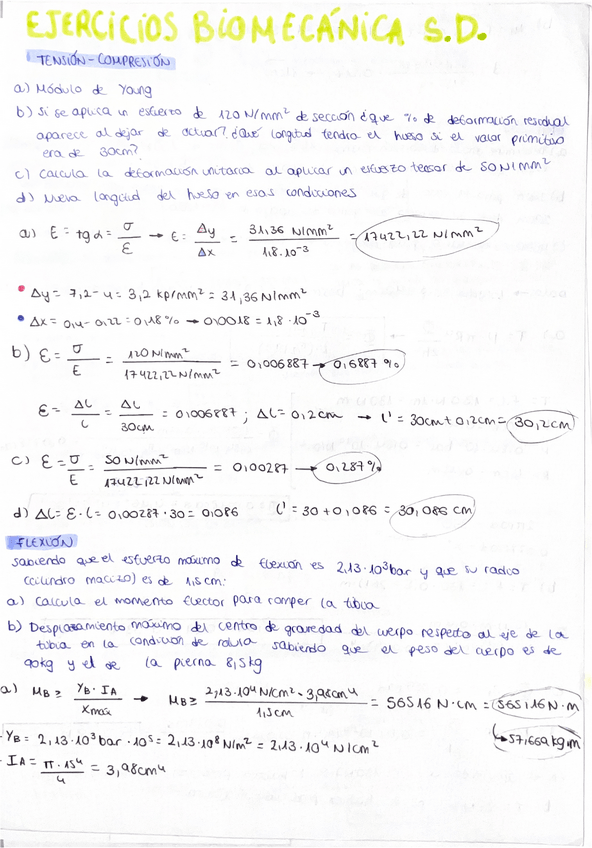 EJERCICIOS BIOMECÁNICA S.D.
TENSIÓN-COMPRESIÓN
a) Módulo de Young
b) Si se aplica un esfuerzo de 120 N/mm² de sección ¿que % de deformación residual
aparece al dejar de actuar? ¿Qué longitud tendra el hueso si el valor primitivo
era de 30cm?
c) Calcula la deformación unitaria al aplicar un esfuerzo tensor de 50 N/mm²
d) Nueva longitud del hueso en esas condiciones
a) E = tg α = σ/ε → E = Δy/Δx = 31,36 N/mm²/1,8·10⁻³ = 17422,22 N/mm²
Δy = 7,2-4 = 3,2 kp/mm² = 31,36 N/mm²
Δx = 0,4-0,22 = 0,18% → 0,0018 = 1,8·10⁻³
b) ε = σ/E = 120 N/mm²/17422,22 N/mm² = 0,006887 → 0,6887 %
ε = ΔL/L = ΔL/30cm = 0,006887 ; ΔL = 0,2cm → L' = 30cm + 0,2cm = 30,2cm
c) ε = σ/E = 50 N/mm²/17422,22 N/mm² = 0,00287 → 0,287%
d) ΔL = ε · L = 0,00287 · 30 = 0,086 L' = 30 + 0,086 = 30,086 cm
FLEXIÓN
Sabiendo que el esfuerzo máximo de flexión es 2,13·10³ bar y que su radio
(cilindro macizo) es de 1,5 cm:
a) Calcula el momento flector para romper la tibia
b) Desplazamiento máximo del centro de gravedad del cuerpo respecto al eje de la
tibia en la condición de rotura sabiendo que el peso del cuerpo es de
90kg y el de la pierna 8,5kg
a) MB ≥ YB · IA/xmáx → MB ≥ 2,13·10⁴ N/cm² · 3,98cm⁴/1,5cm = 56516 N·cm = 565,16 N·m
↳ 57,669 kg·m
- YB = 2,13·10³ bar · 10⁵ = 2,13·10⁸ N/m² = 2,13·10⁴ N/cm²
- IA = π · 1,5⁴/4 = 3,98cm⁴